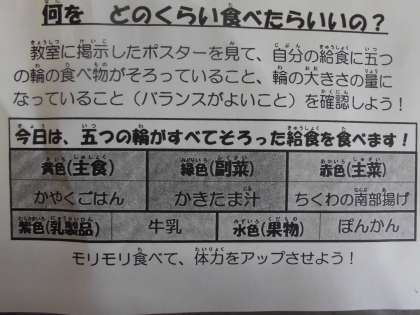 何を どのくらい食べたらいいの？
教室に掲示したポスターを見て、自分の給食に五つ
の輪の食べ物がそろっていること、輪の大きさの量に
なっていること（バランスがよいこと）を確認しよう！
今日は、五つの輪がすべてそろった給食を食べます！
黄色(主食) 緑色(副菜) 赤色(主菜)
かやくごはん かきたま汁 ちくわの南部揚げ
紫色(乳製品) 牛乳 水色(果物) ぽんかん
モリモリ食べて、体力をアップさせよう！